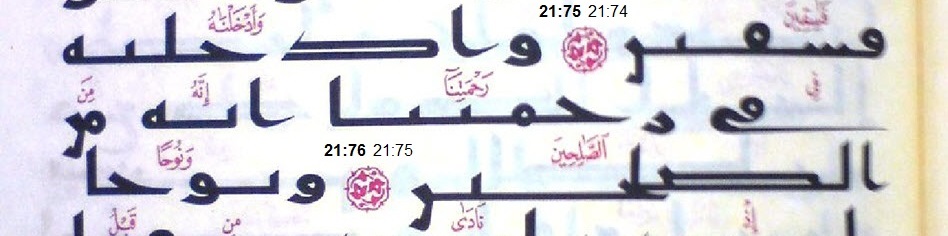 21:75 21:74
فَٰسِقِينَ وَأَدْخَلْنَٰهُ
فسقين وادخلنه
فِي رَحْمَتِنَآ إِنَّهُۥ مِنَ
فى رحمتنا انه من
21:76 21:75
ٱلصَّٰلِحِينَ وَنُوحًا
الصلحين ونوحا
إِذْ نَادَىٰ مِن قَبْلُ